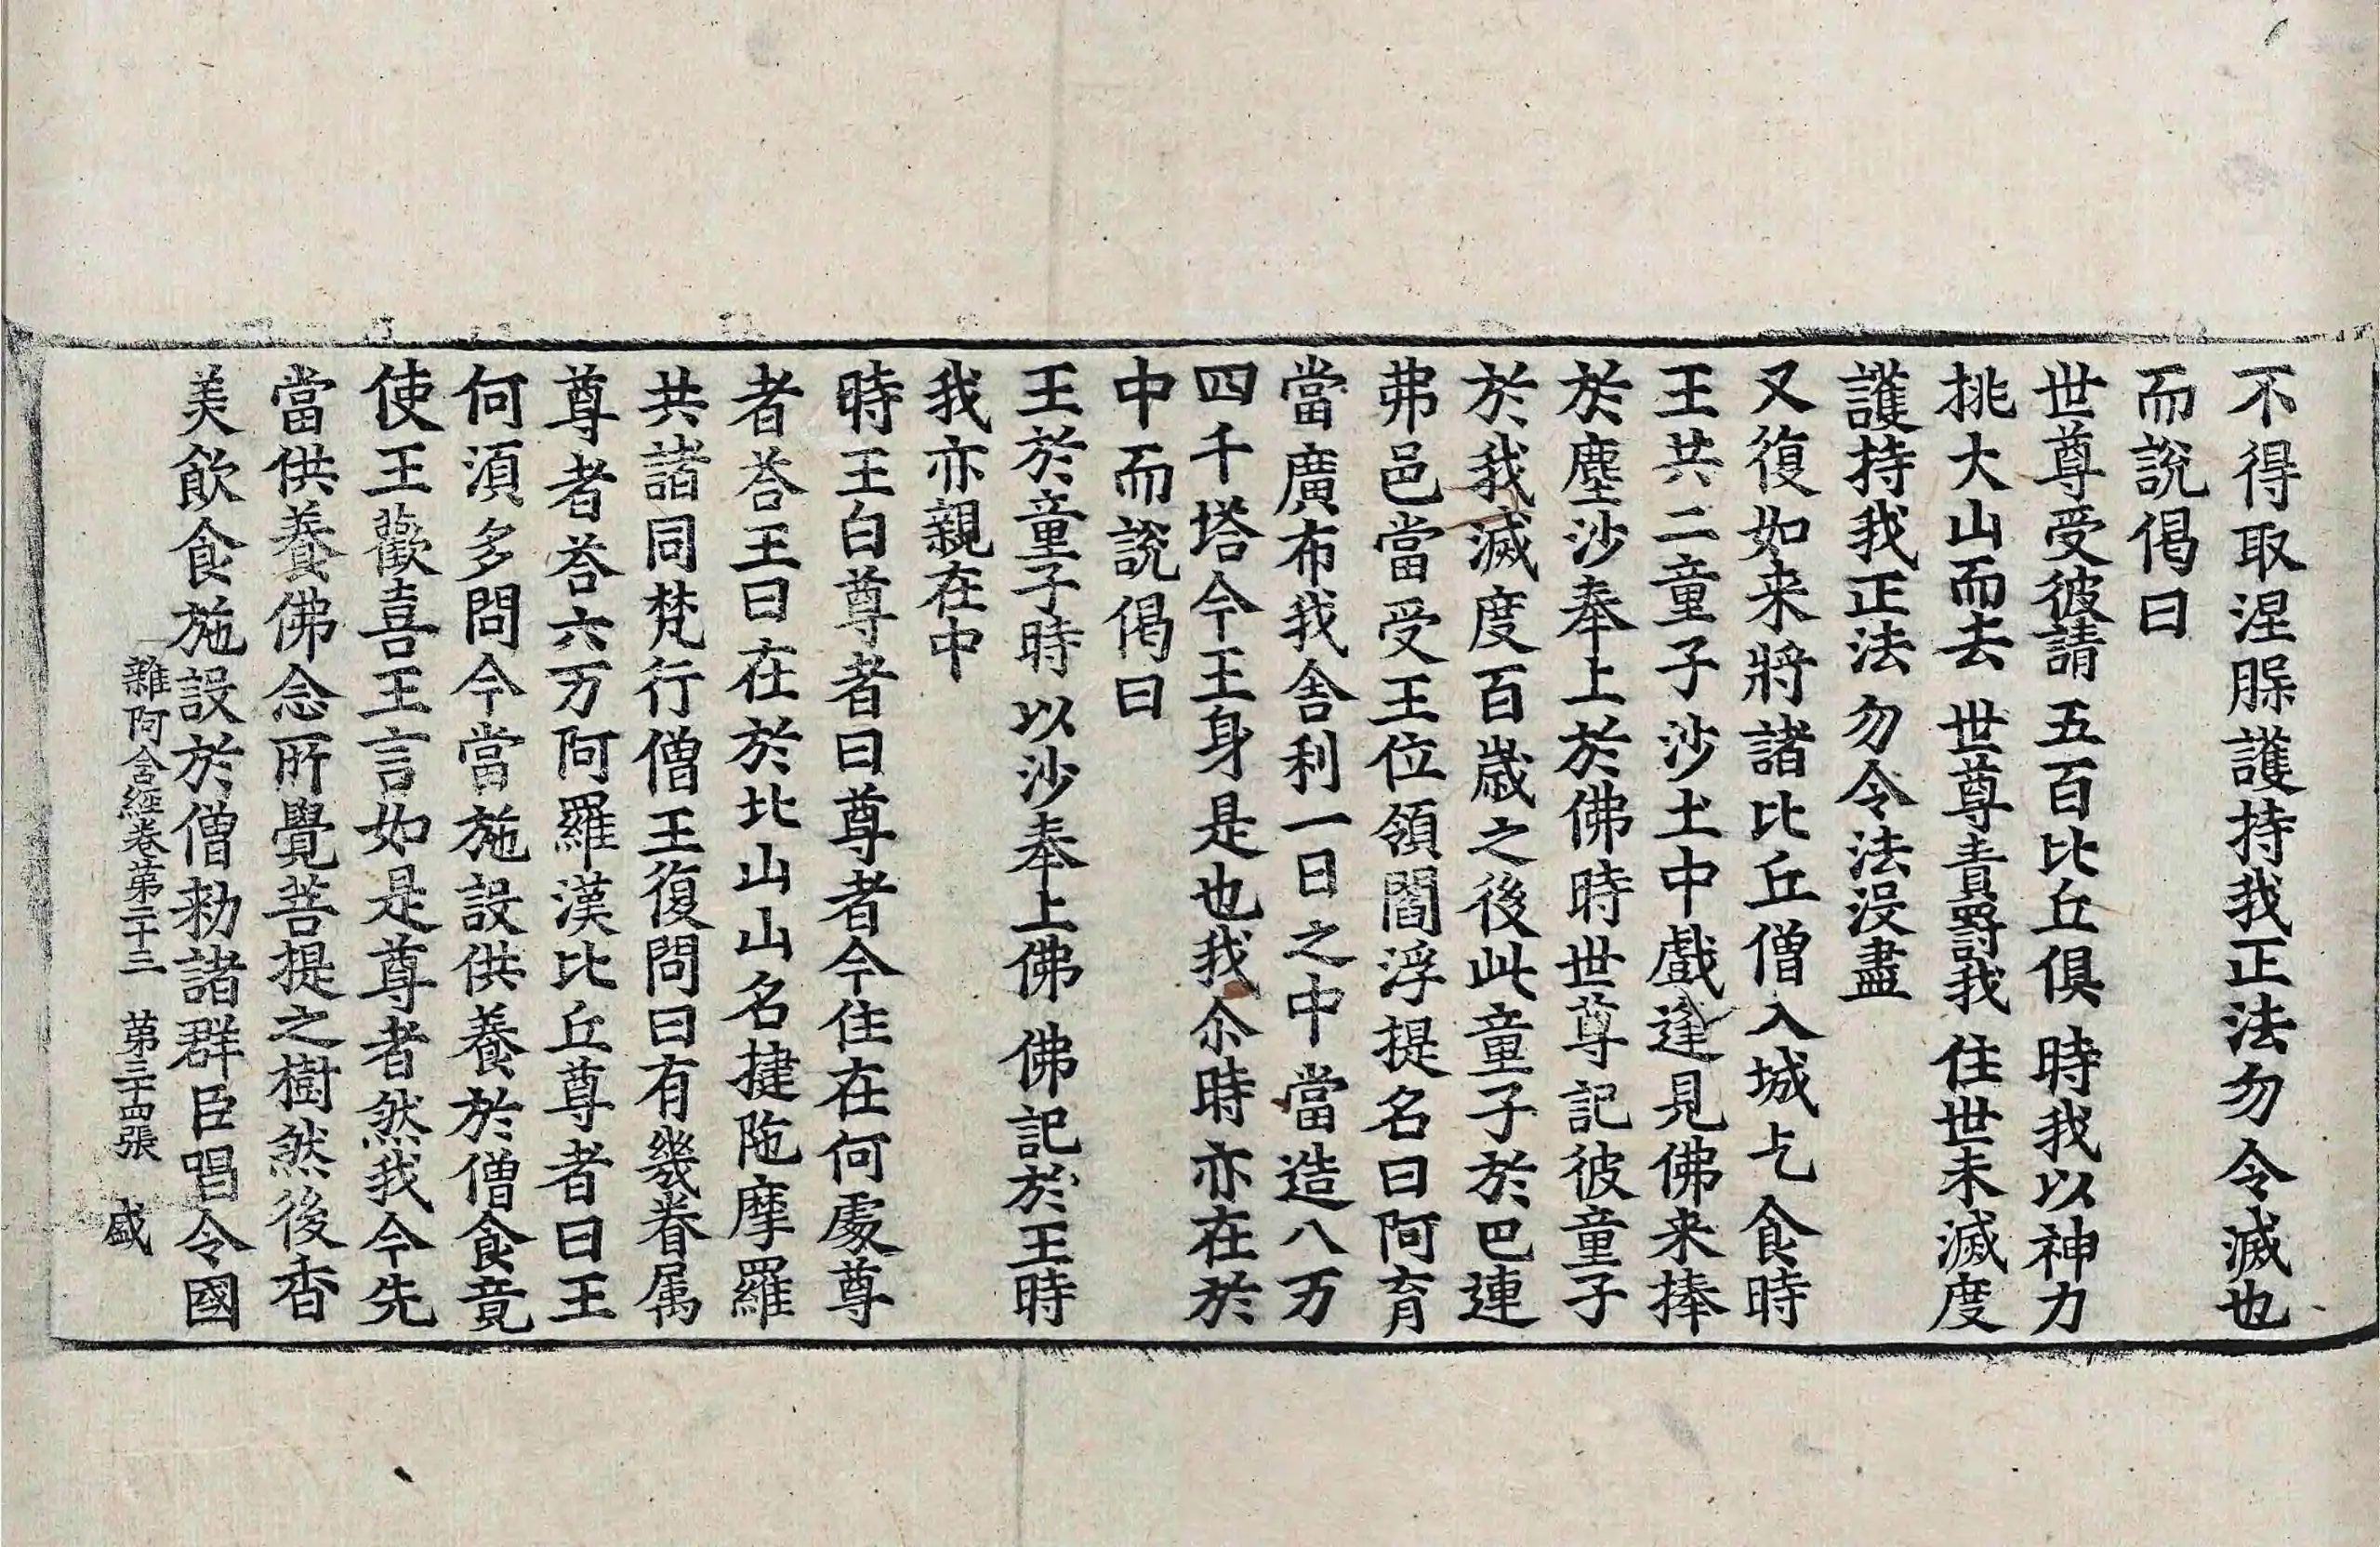 不得取涅脲護持我正法勿令滅也
而說偈曰
世尊受彼請 五百比丘俱 時我以神力
挑大山而去 世尊責罸我 住世未滅度
護持我正法 勿令法没盡
又復如来將諸比丘僧入城乞食時
王共二童子沙土中戲逢見佛来捧
於塵沙奉上於佛時世尊記彼童子
於我滅度百歳之後此童子於巴連
弗邑當受王位領閻浮提名曰阿育
當廣布我舎利一日之中當造八万
四千塔今王身是也我尒時亦在於
中而說偈曰
王於童子時 以沙奉上佛 佛記於王時
我亦親在中
時王白尊者曰尊者今住在何處尊
者荅王曰在於北山山名揵陁摩羅
共諸同梵行僧王復問曰有幾眷属
尊者荅六万阿羅漢比丘尊者曰王
何湏多問今當施設供養於僧食竟
使王歡喜王言如是尊者然我今先
當供養佛念所覺菩提之樹然後香
美飲食施設於僧勑諸群臣唱令國
雜阿含經卷苐二十三 苐三十四張 盛